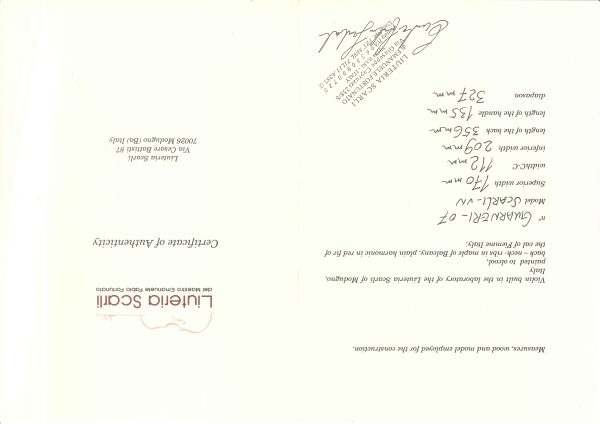 Liuteria Scarli
del Maestro Emanuele Fabio Fortunato
Certificate of Authenticity
Liuteria Scarli
Via Cesare Battisti 87
70026 Modugno (Ba) Italy
Measures, wood and model employed for the construction.
Violin built in the laboratory of the Liuteria Scarli of Modugno,
Italy
painted to olcool,
back – nech- ribs in maple of Balcany, plain harmonic in red fir of
the val of Fiemme Italy,
n° GUARNERI-07
Model SCARLI-VN
Superior width 170 mm
widthC-C 112 mm
inferior width 209 mm
length of the back 356 mm
length of the handle 135 mm
diapason 327 mm
LIUTERIA SCARLI